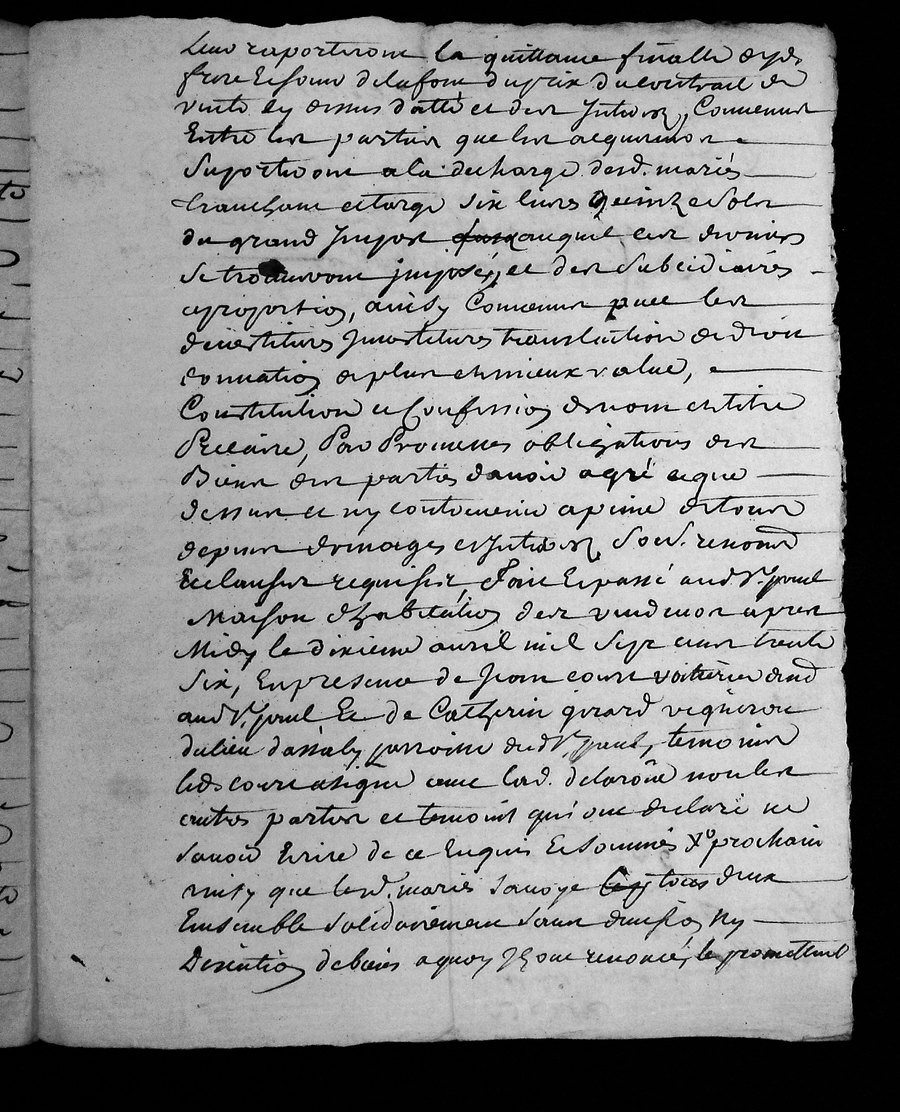 Leur raporteront la quittance finalle desd
frere et soeur delafon du prix du contrait de
vente cy dessus datté et des Interets, Convenu
Entre les parties que les acquereurs
Suporteront a la decharge desd. mariés
six livres quinze sols
du grand Impot auquel ces derniers
se trouveront imposés, et des subcidiaires
a proportion, ainsy Convenu avec les
devestitures Investitures translation de droit
donnation de plus et mieux value,
Constitution et Confession de nom et titre
Precaire, Par Promesses obligations des
Biens des parties d'avoir agré ce que
dessus et ny contrevenir a peine de tous
depens domages et Interets, sous. renond
et clauses requises, Fait et passé aud St. paul
Maison d'habitation des vendeurs apres
Midy le dixieme avril mil sept cent trente
Six, En presence de Jean court voiturier
aud St. paul Et de Catherin girard vigneron
du lieu parroisse dud St. paul, temoins
led court a signé avec lad. delaroüe non les
autres parties et temoins qui ont declaré ne
savoir Ecrire de ce Enquis Et Sommés prochain
ainsy que lesd. mariés deux
Ensemble Solidairement Sans division ny
Discution de biens a quoy Ils ont renoncé, le promettent